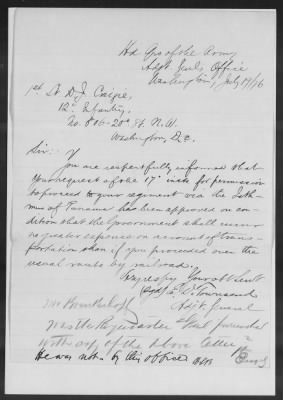 Hd Qrs of the Army
Adjt Genls Office
Washington, July 19/76
1st Lt D. J. Craigie,
12" Infantry,
No. 806-20th St. N.W.
Washington, D.C.
Sir:
You are respectfully informed that
your request of the 17" inst. for permission
to proceed to your regiment via the Isth-
mus of Panama has been approved on con-
dition that the Government shall incur
no greater expense on account of trans-
portation than if you proceeded over the
usual route by railroad.
Very respy Your obt Servt
E. D. Townsend
Adjt Genl
Was the Quartermaster Genl furnished
with copy of the above letter
He was not by this office